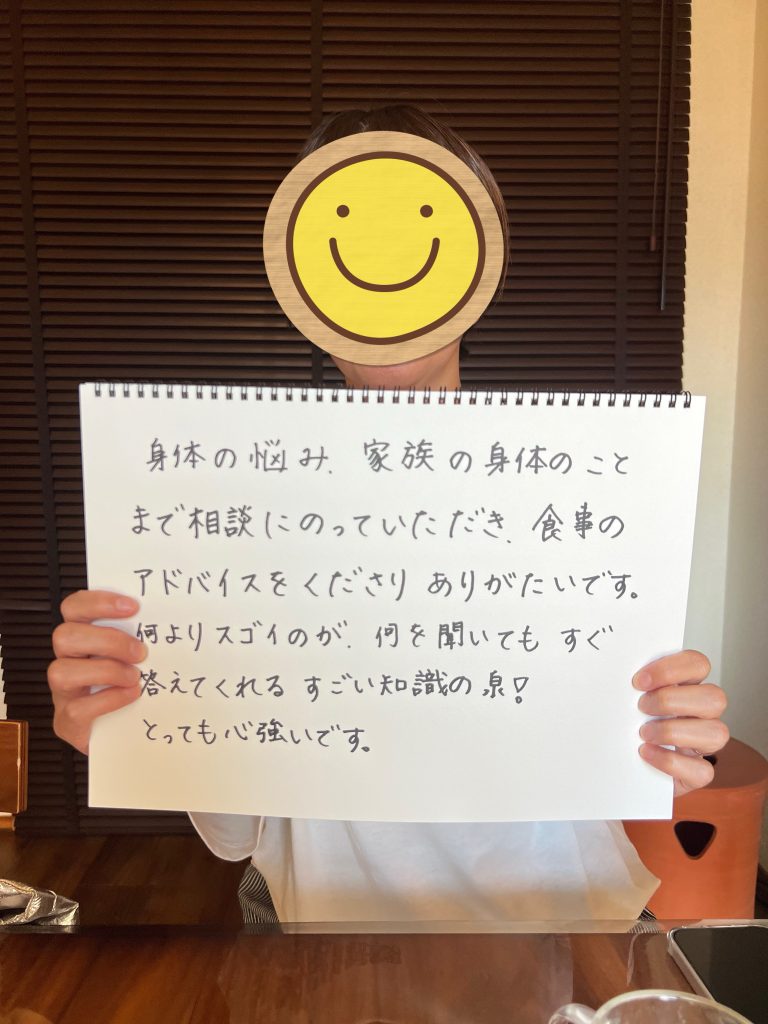 身体の悩み、家族の身体のこと
まで相談にのっていただき、食事の
アドバイスをくださり ありがたいです。
何よりスゴイのが、何を聞いても すぐ
答えてくれる すごい知識の泉!
とっても心強いです。